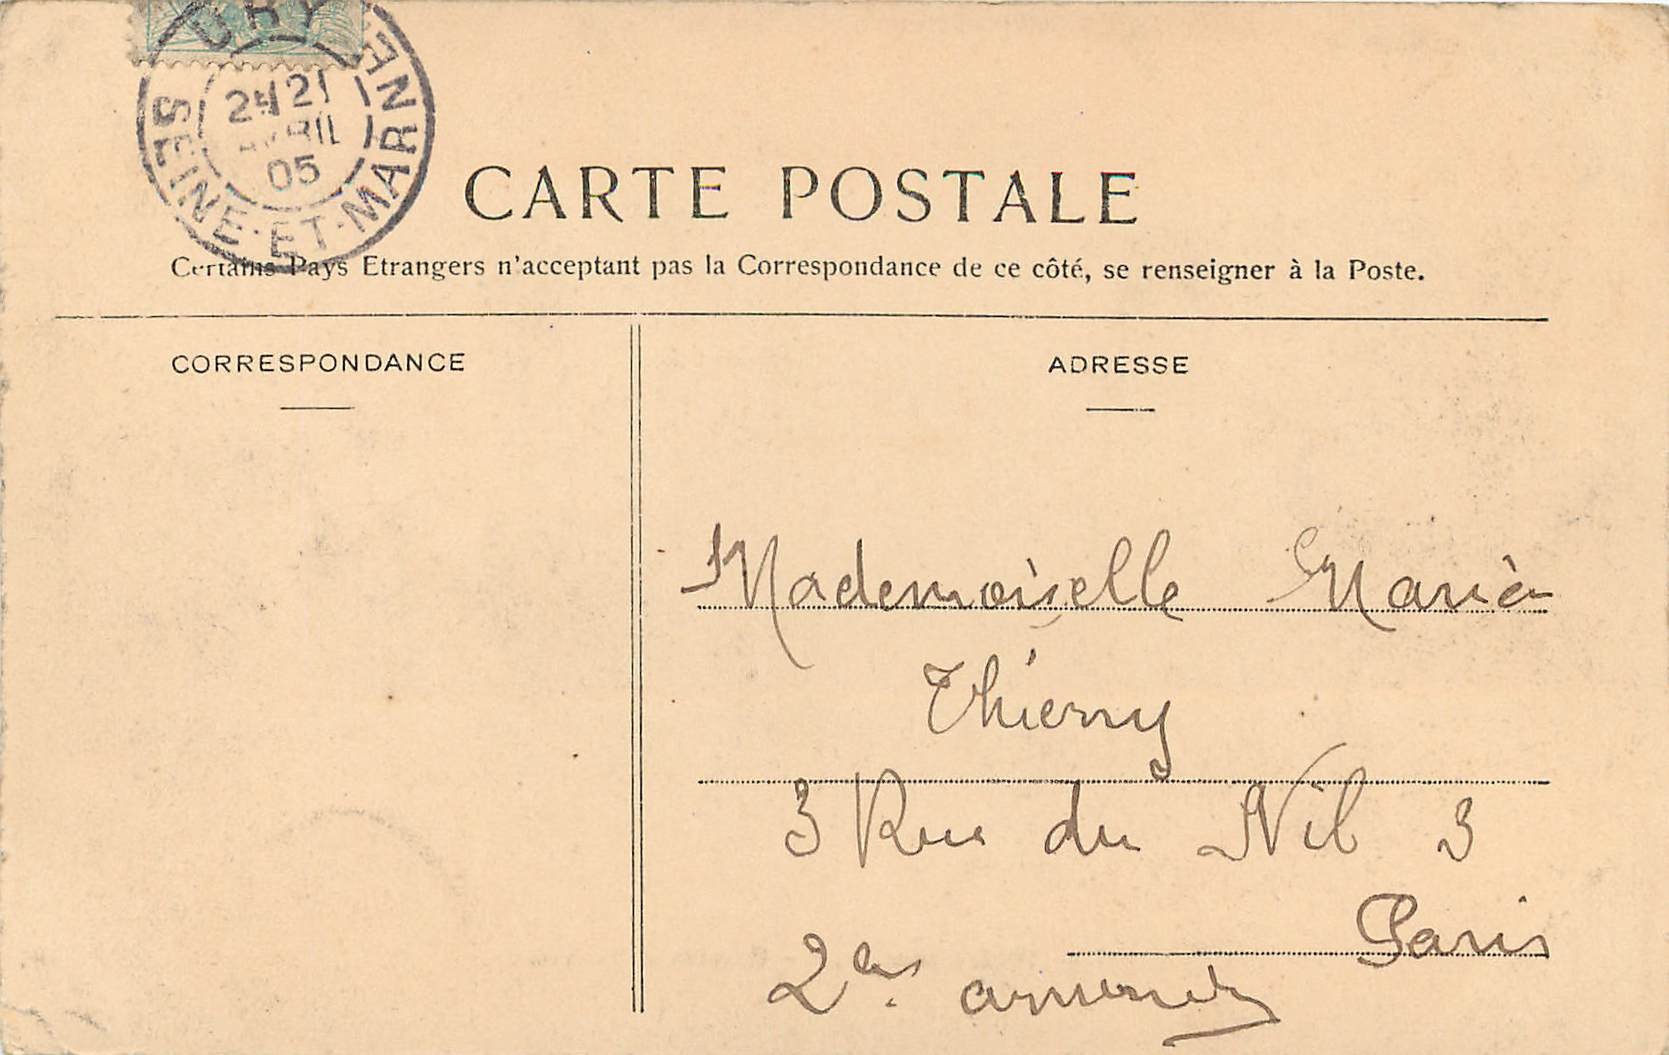 URY
SEINE-ET-MARNE
21
AVRIL
05
CARTE POSTALE
Certains Pays Etrangers n'acceptant pas la Correspondance de ce côté, se renseigner à la Poste.
CORRESPONDANCE
ADRESSE
Mademoiselle Maria
Thierry
3 Rue du Nil 3
Paris